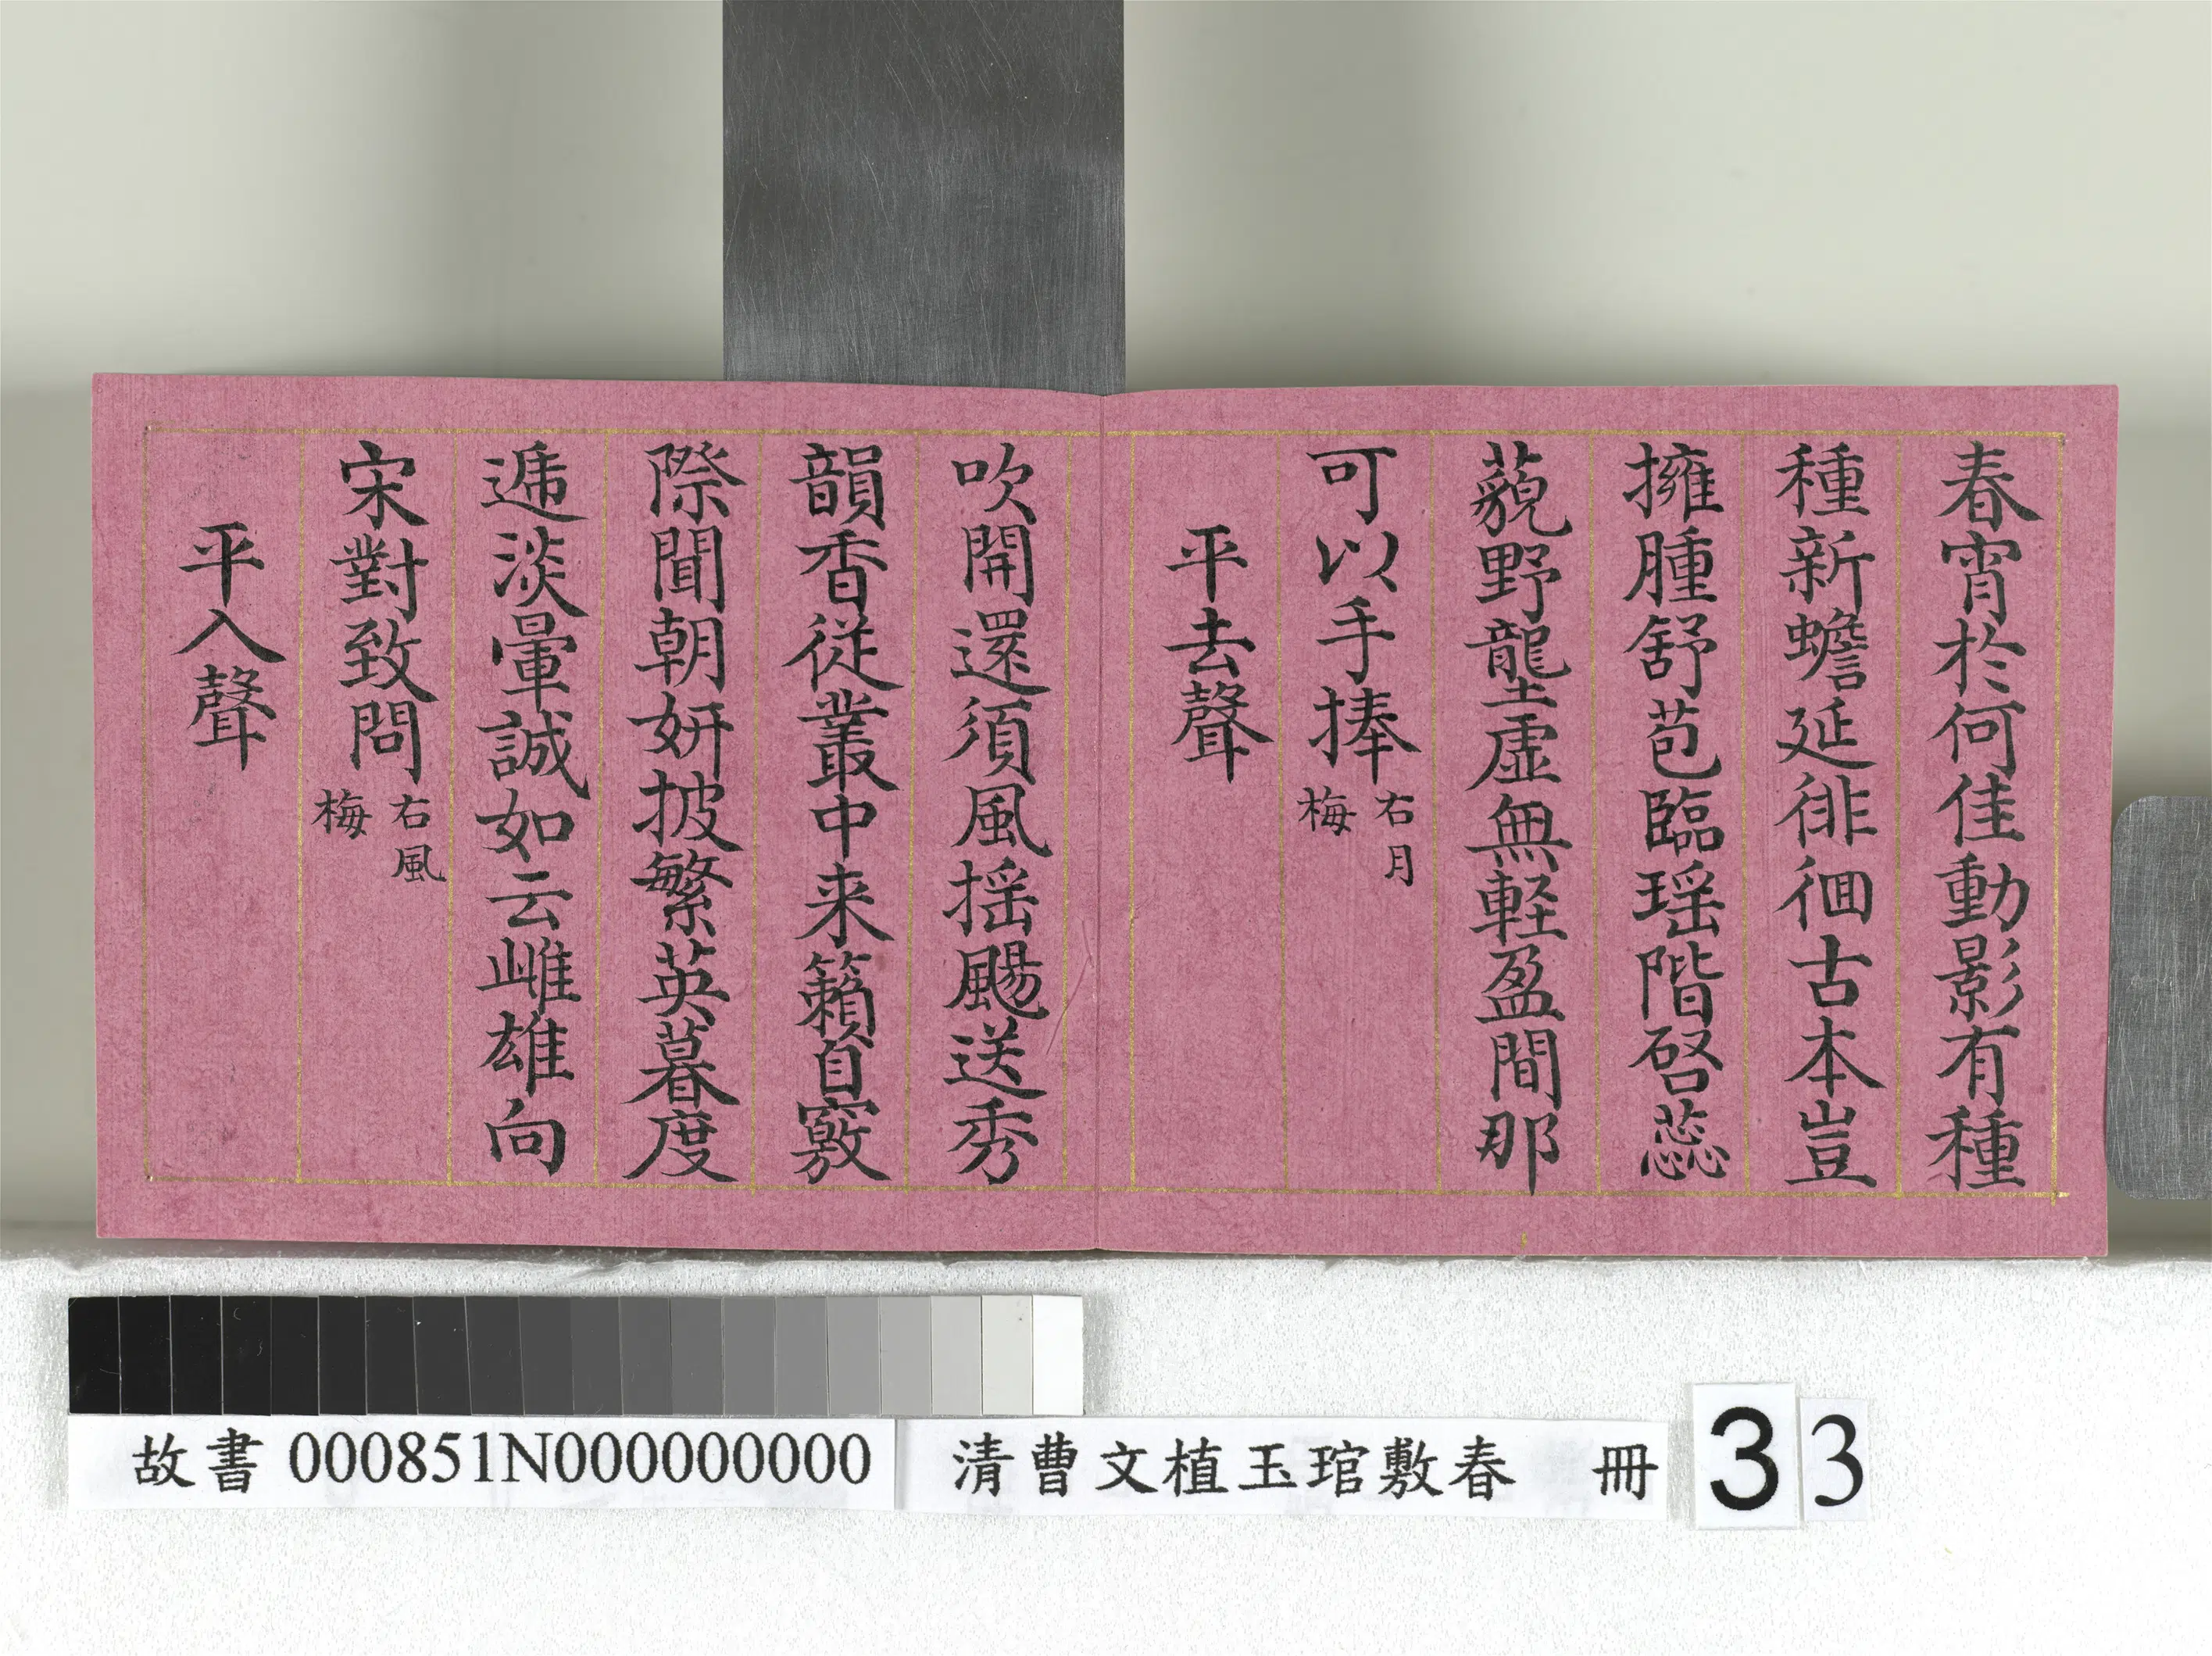 春宵於何佳動影有種
種新蟾延徘徊古本豈
擁腫舒苞臨瑶階啓蕊
藐野龍虚無軽盈間那
可以手捧右月梅
平去聲
吹開還須風揺颺送秀
韻香從叢中来籟自竅
際聞朝妍披繁英暮度
遞淡暈誠如云雌雄向
宋對致問右風梅
平入聲
故書 000851N000000000
清曹文植玉琯敷春 冊
3
3